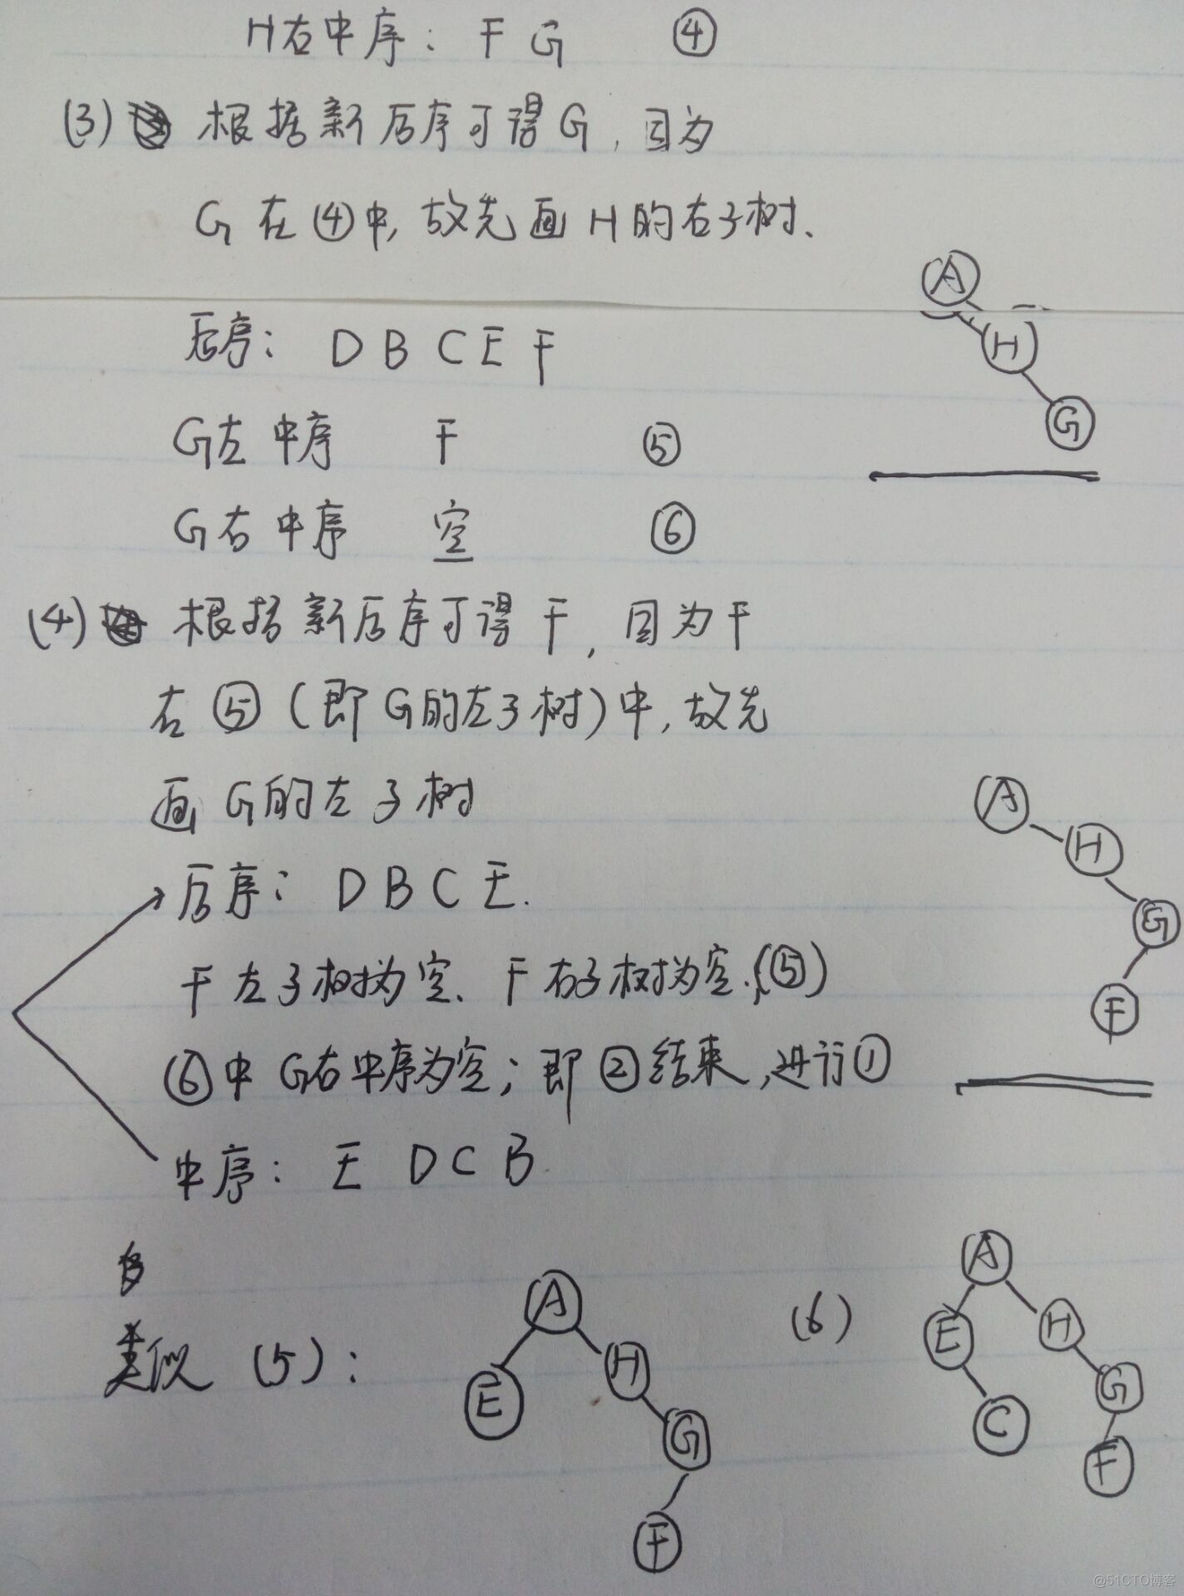 H右中序: F G ④
(3) 根据新后序可得G,因为
G在④中,故先画H的右子树、
后序: D B C E F
G左中序 F ⑤
G右中序 空 ⑥
A
H
G
(4) 根据新后序可得F,因为F
右⑤(即G的左子树)中,故先
画G的左子树
后序: D B C E.
F左子树为空、F右子树为空.(⑤)
⑥中G右中序为空;即②结束,进行①
中序: E D C B
A
H
G
F
类似 (5):
A
E
H
G
F
(6)
A
E
H
C
G
F
@51CTO博客